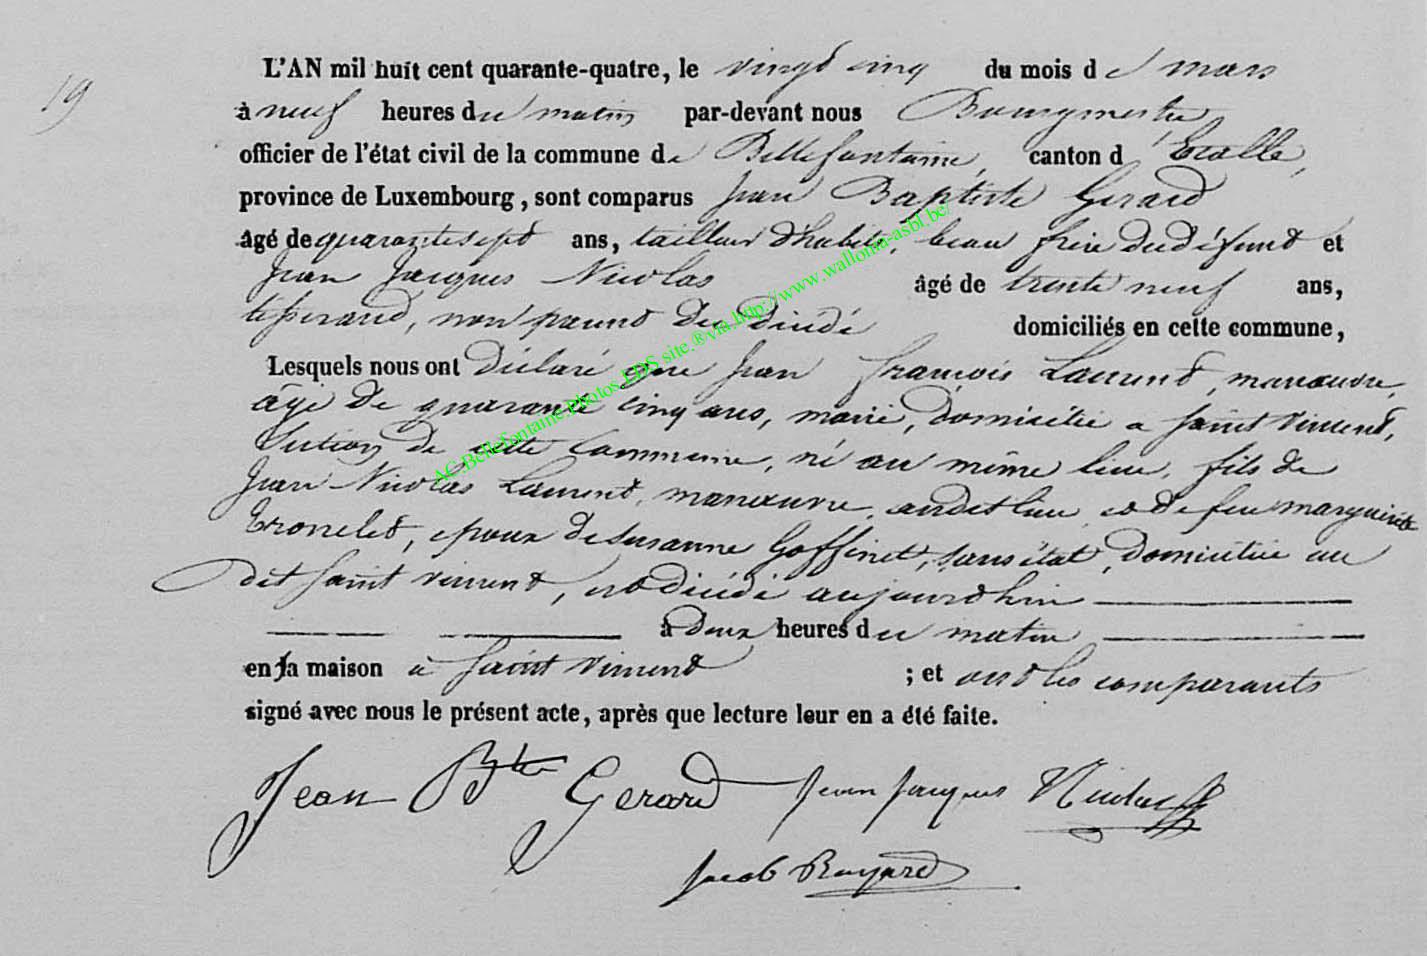 19
L'AN mil huit cent quarante-quatre, le vingt cinq du mois de mars
à neuf heures du matin par-devant nous Bourgmestre
officier de l'état civil de la commune de Bellefontaine, canton d'Etalle,
province de Luxembourg, sont comparus Jean Baptiste Gerard
âgé de quarante sept ans, tailleur d'habits, beau frère du défunt et
Jean Jacques Nicolas âgé de trente neuf ans,
tisserand, non parent du décédé domiciliés en cette commune,
Lesquels nous ont déclaré que Jean François Laurent, manœuvre,
âgé de quarante cinq ans, marié, domicilié a Saint Vincent,
section de cette commune, né au même lieu, fils de
Jean Nicolas Laurent, manœuvre, audit lieu et de feue marguerite
epoux de Susanne Goffinet, sans état, domiciliée au
dit Saint Vincent, est décédé aujourd'hui
à deux heures du matin
en sa maison à Saint Vincent ; et ont les comparants
signé avec nous le présent acte, après que lecture leur en a été faite.
Jean Bte Gerard Jean Jacques Nicolas
Jacob Rayard
AC.Bellefontaine.Photos.LDS site.®via.http://www.wallonia-asbl.be/